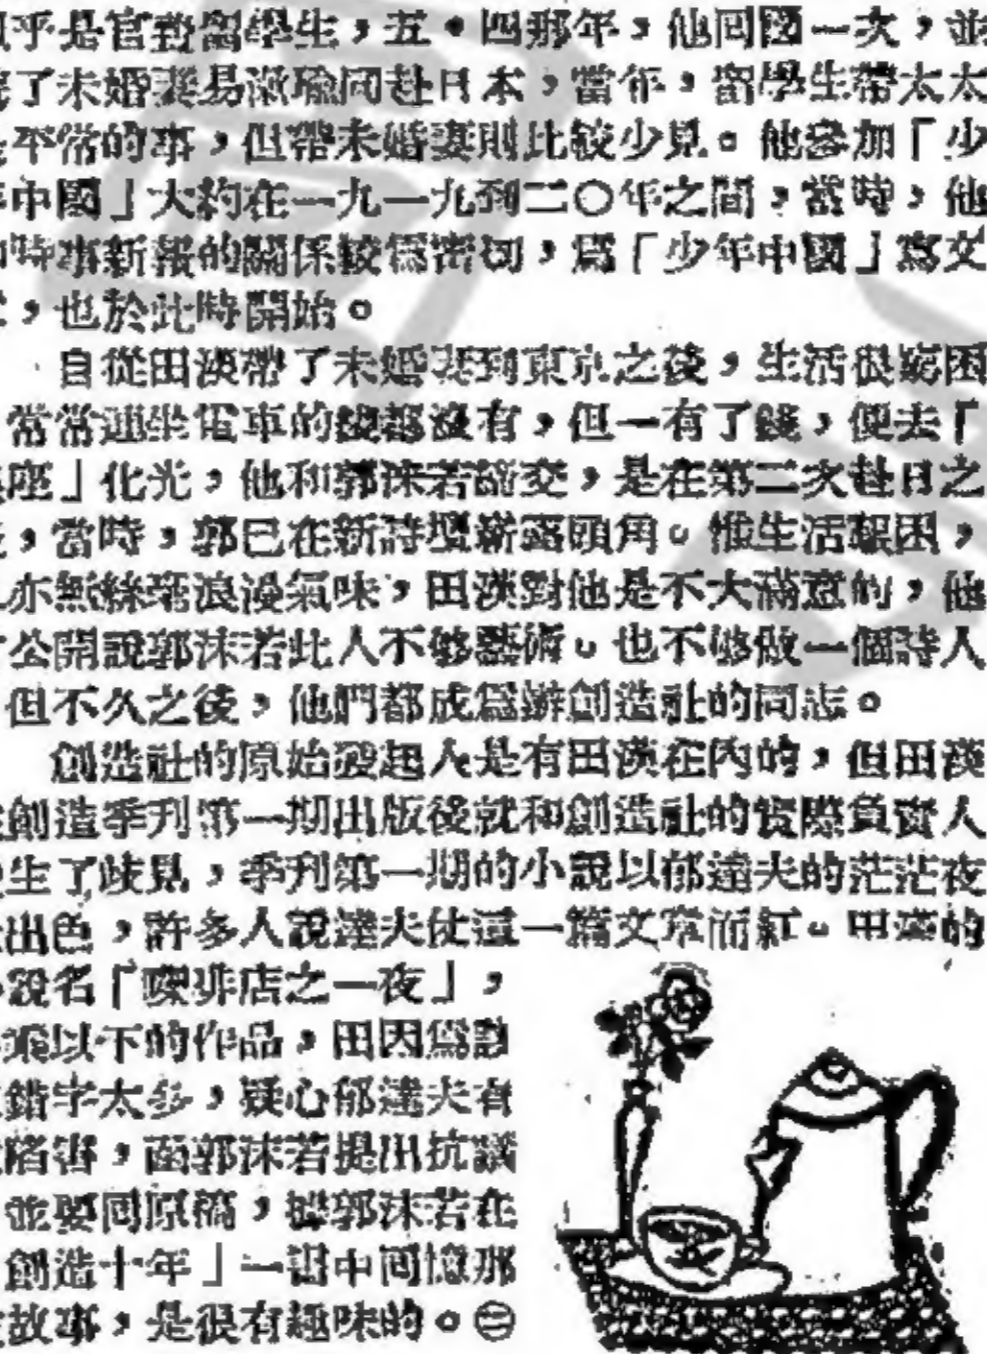 乎是官費留學生，五・四那年，他囘國一次，並
了未婚妻易漱瑜同赴日本，當年，留學生帶太太
平常的事，但帶未婚妻則比較少見。他參加「少
中國」大約在一九一九到二〇年之間，當時，他
時事新報的關係較爲密切，爲「少年中國」寫文
，也於此時開始。
自從田漢帶了未婚妻到東京之後，生活很窮困
常常連坐電車的錢都沒有，但一有了錢，便去「
座」化光，他和郭沫若締交，是在第二次赴日之
，當時，郭已在新詩壇嶄露頭角。惟生活艱困，
亦無絲毫浪漫氣味，田漢對他是不大滿意的，他
公開說郭沫若此人不够藝術。也不够做一個詩人
但不久之後，他們都成爲辦創造社的同志。
創造社的原始發起人是有田漢在內的，但田漢
創造季刊第一期出版後就和創造社的實際負責人
生了歧見，季刊第一期的小說以郁達夫的茫茫夜
出色，許多人說達夫仗這一篇文章而紅。田漢的
說名「咖啡店之一夜」，
乘以下的作品，田因爲
錯字太多，疑心郁達夫有
陷害，面郭沫若提出抗議
並要囘原稿，據郭沫若在
創造十年」一書中囘憶那
故事，是很有趣味的。㊁